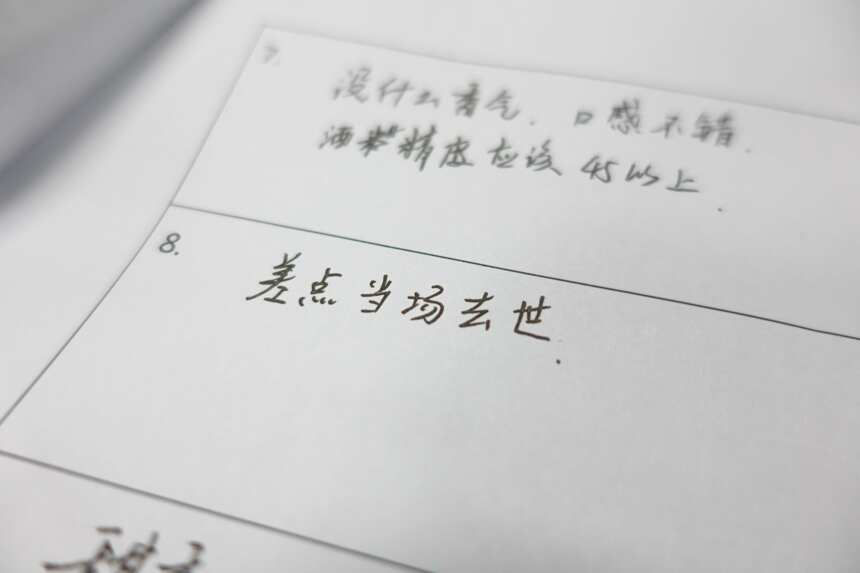 7.
没什么香气. 口感不错.
酒精度应该 45以上.
8.
差点当场去世.